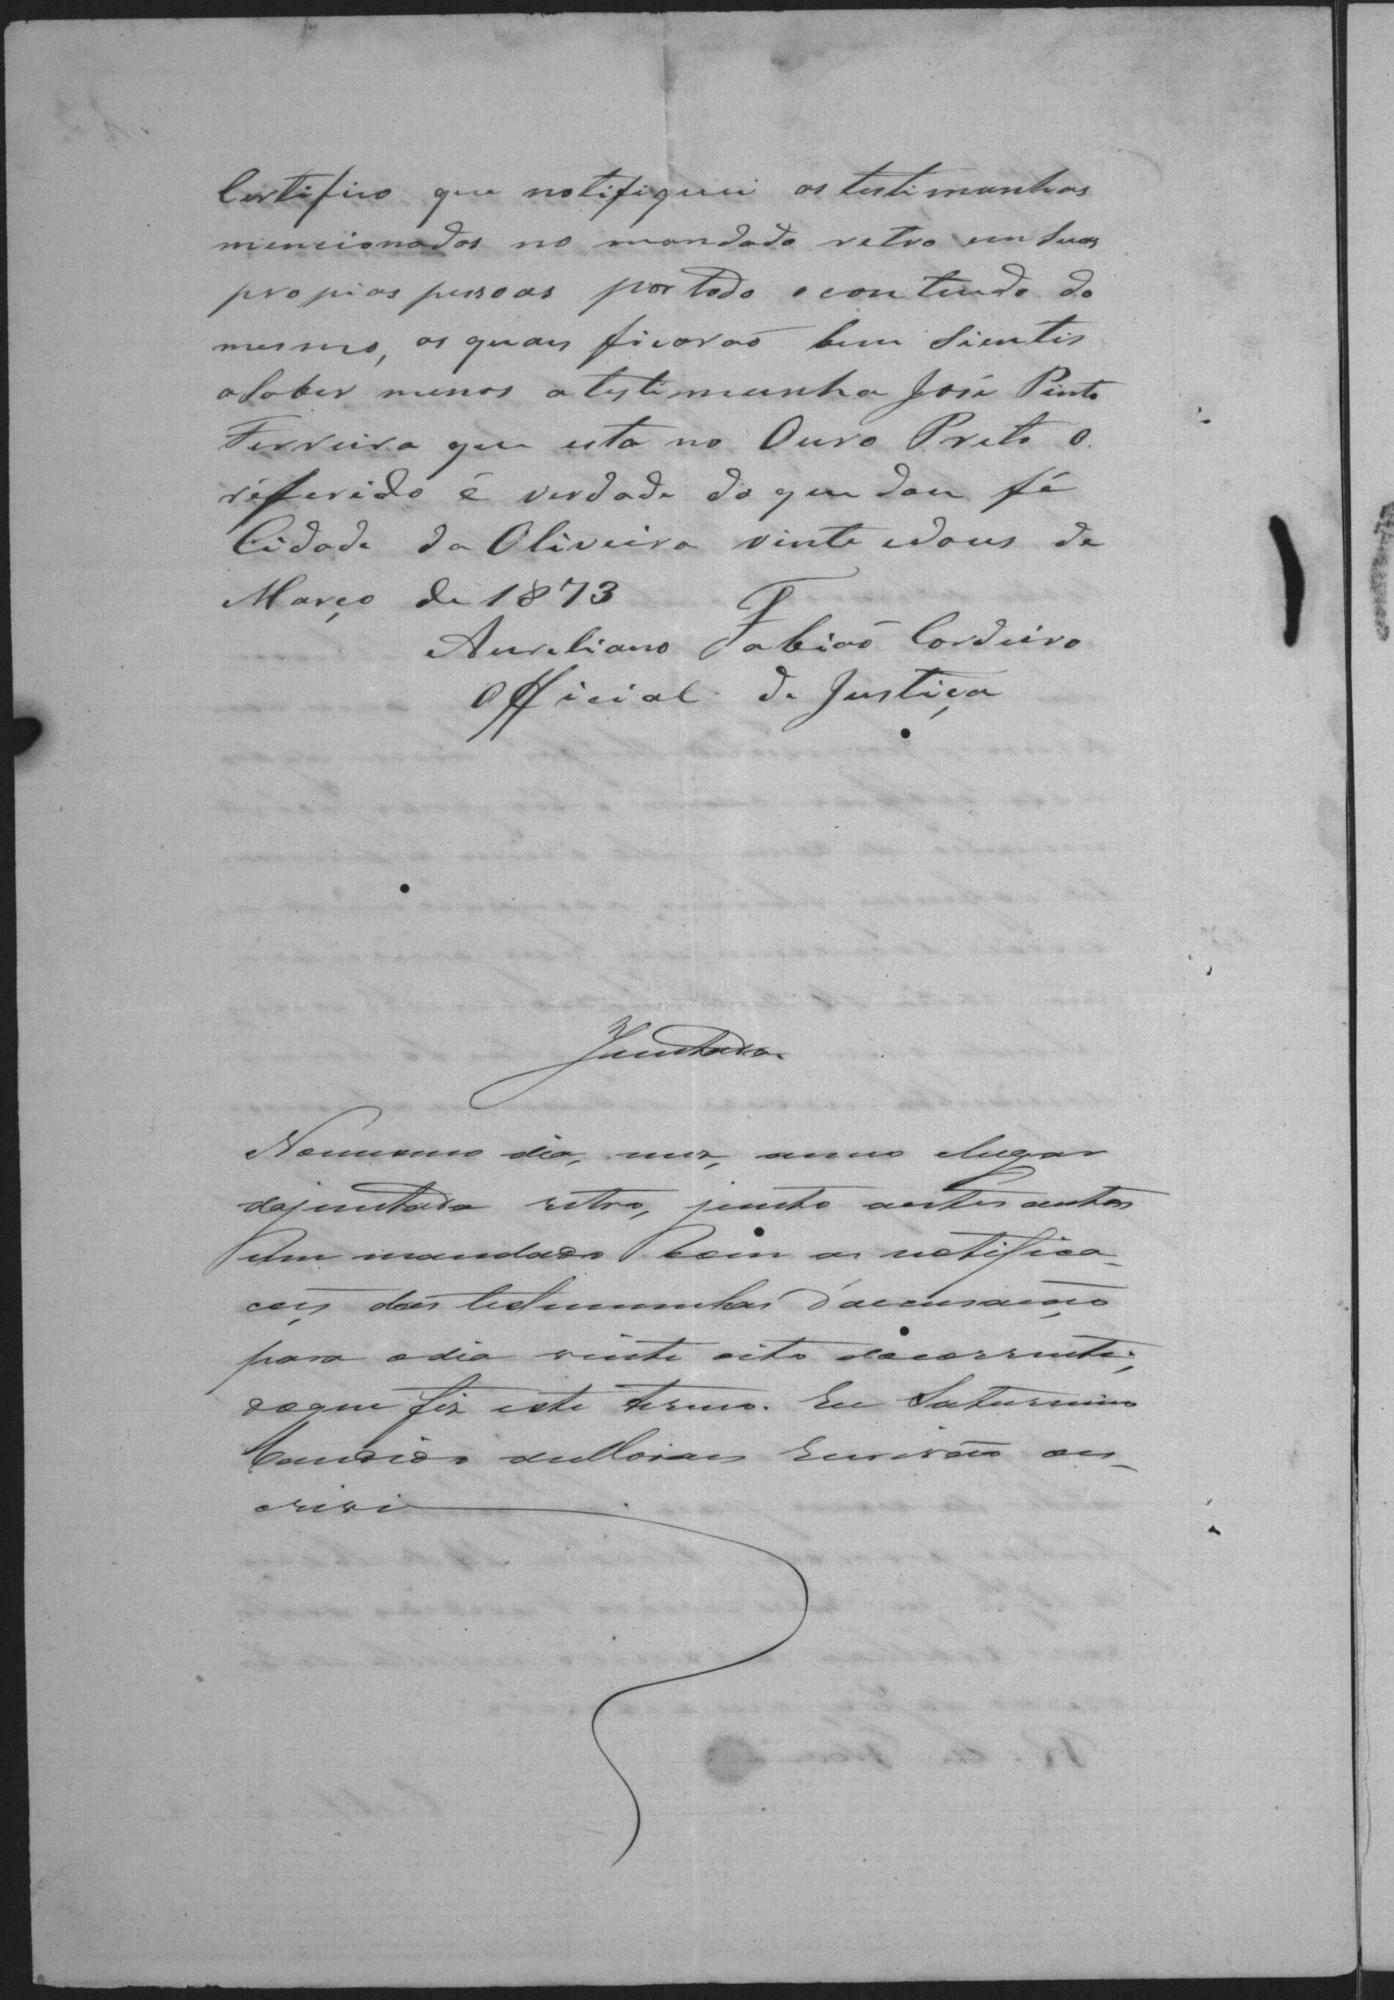 Certifico que notifiquei as testimunhas
mencionadas no mandado retro em suas
propias pessoas por todo o contiudo do
mesmo, as quais ficarão bem sientis
a saber menos a testimunha José Pinto
Ferreira que esta no Ouro Preto O
referido é verdade do que dou fé
Cidade da Oliveira vinte e dous de
Março de 1873
Aureliano Fabião Cordeiro
Official de Justiça
Juntada
No mesmo dia, mez, anno e lugar
da juntada retro, junto a estes autos
um mandado com as notifica-
ções das testimunhas d'accusação
para o dia vinte oito do corrente;
do que fiz este termo. Eu Saturnino
Candido de Moraes Escrivão es-
crivi